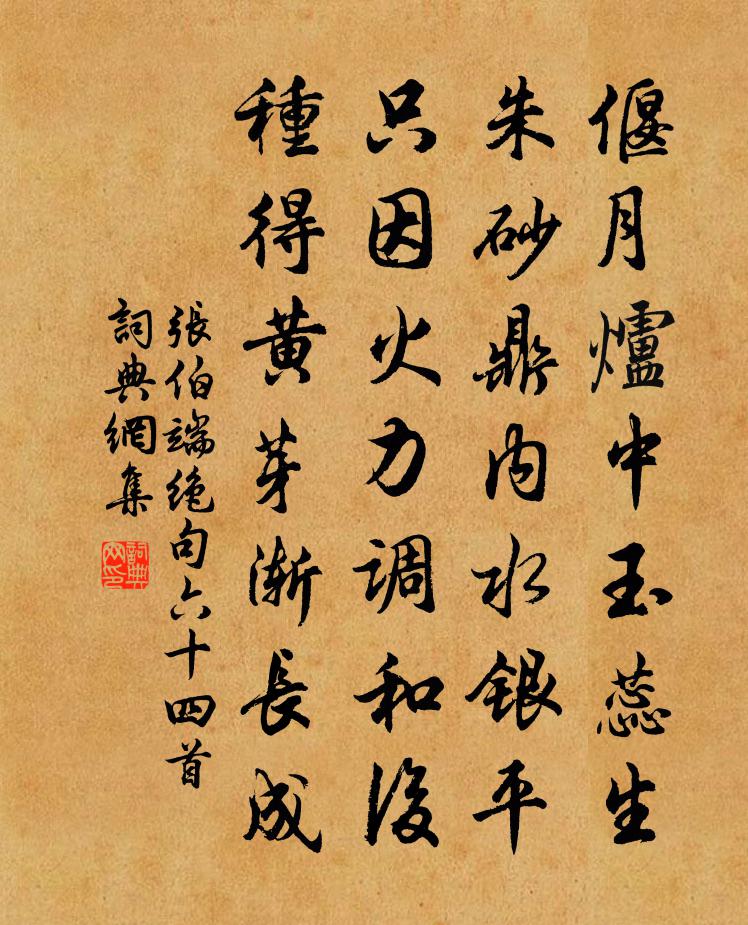 偃月爐中玉蕊生
朱砂鼎內水銀平
只因火力調和後
種得黄芽漸長成
張伯端絶句六十四首
詞典網集
詞典網印